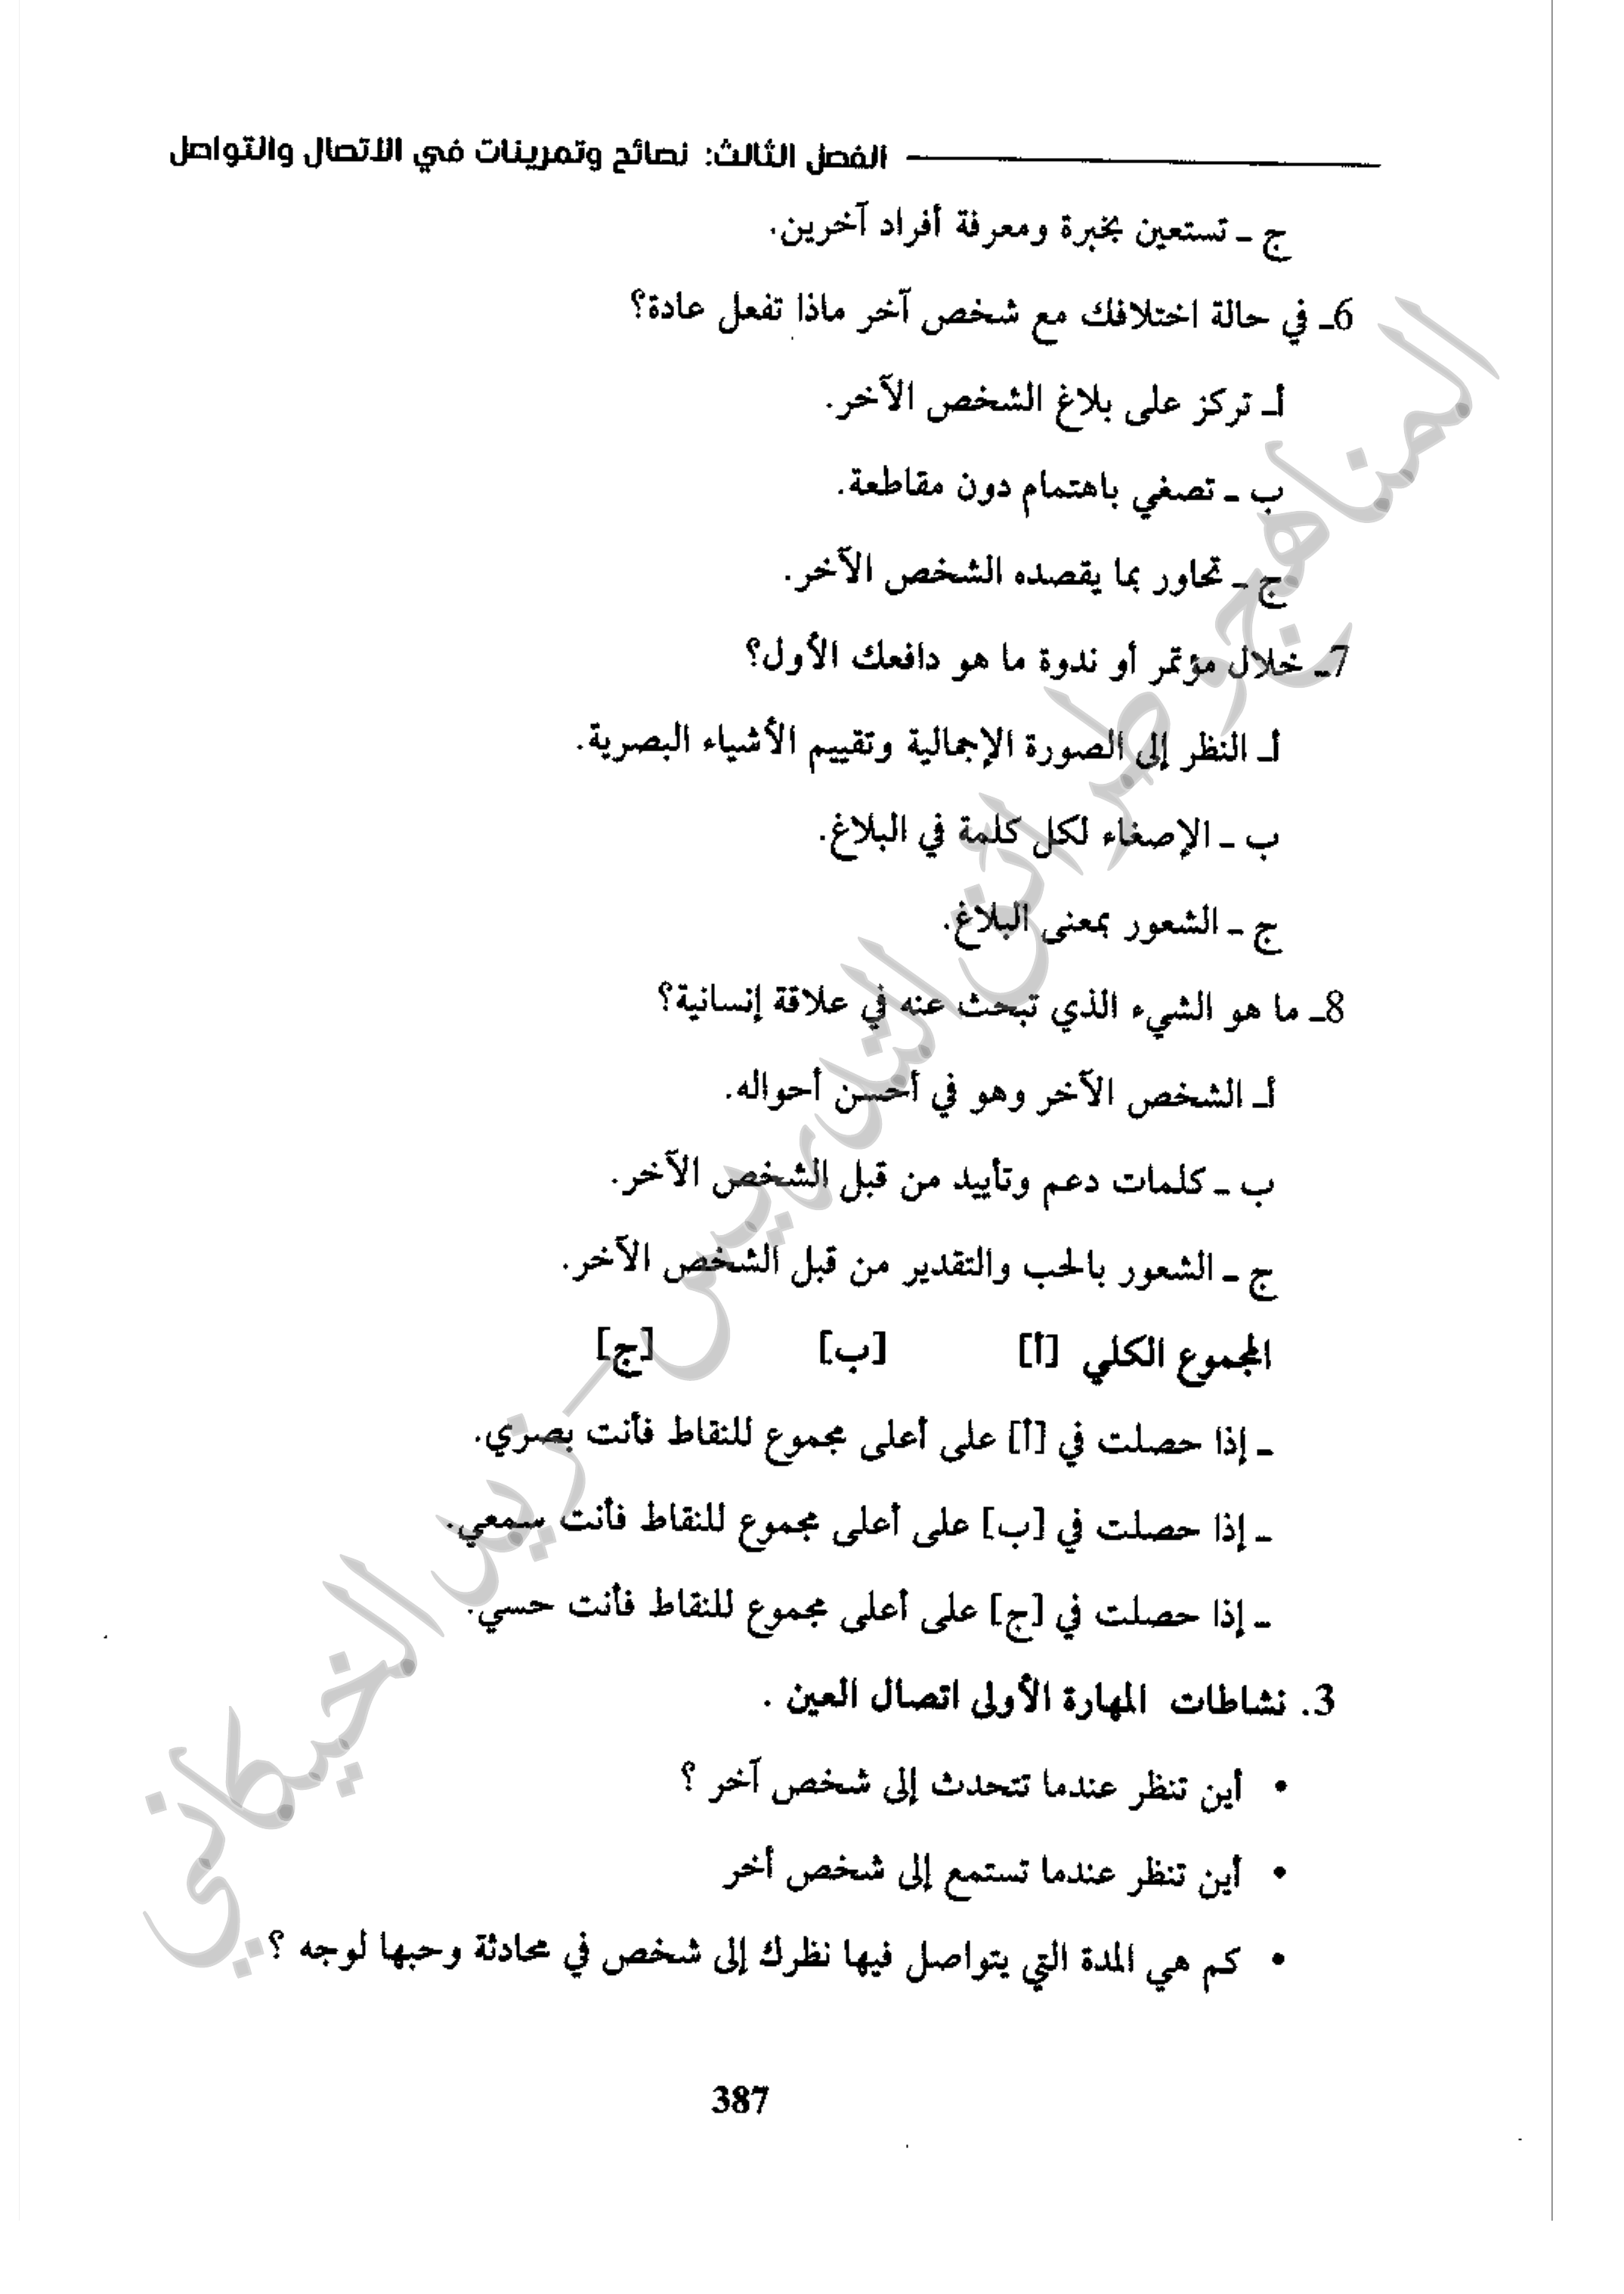 الفصل الثالث: نصائح وتمرينات في الاتصال والتواصل
ج ـ تستعين بخبرة ومعرفة أفراد آخرين.
6ـ في حالة اختلافك مع شخص آخر ماذا تفعل عادة؟
أـ تركز على بلاغ الشخص الآخر.
ب ـ تصغي باهتمام دون مقاطعة.
ج ـ تحاور بما يقصده الشخص الآخر.
7ـ خلال مؤتمر أو ندوة ما هو دافعك الأول؟
أـ النظر إلى الصورة الإجمالية وتقييم الأشياء البصرية.
ب ـ الإصغاء لكل كلمة في البلاغ.
ج ـ الشعور بمعنى البلاغ.
8ـ ما هو الشيء الذي تبحث عنه في علاقة إنسانية؟
أـ الشخص الآخر وهو في أحسن أحواله.
ب ـ كلمات دعم وتأييد من قبل الشخص الآخر.
ج ـ الشعور بالحب والتقدير من قبل الشخص الآخر.
المجموع الكلي [أ] [ب] [ج]
ـ إذا حصلت في [أ] على أعلى مجموع للنقاط فأنت بصري.
ـ إذا حصلت في [ب] على أعلى مجموع للنقاط فأنت سمعي.
ـ إذا حصلت في [ج] على أعلى مجموع للنقاط فأنت حسي.
3. نشاطات المهارة الأولى اتصال العين .
• أين تنظر عندما تتحدث إلى شخص آخر ؟
• أين تنظر عندما تستمع إلى شخص أخر
• كم هي المدة التي يتواصل فيها نظرك إلى شخص في محادثة وحبها لوجه ؟
387
المناهج وطرائق التدريس - زيد الخيكاني